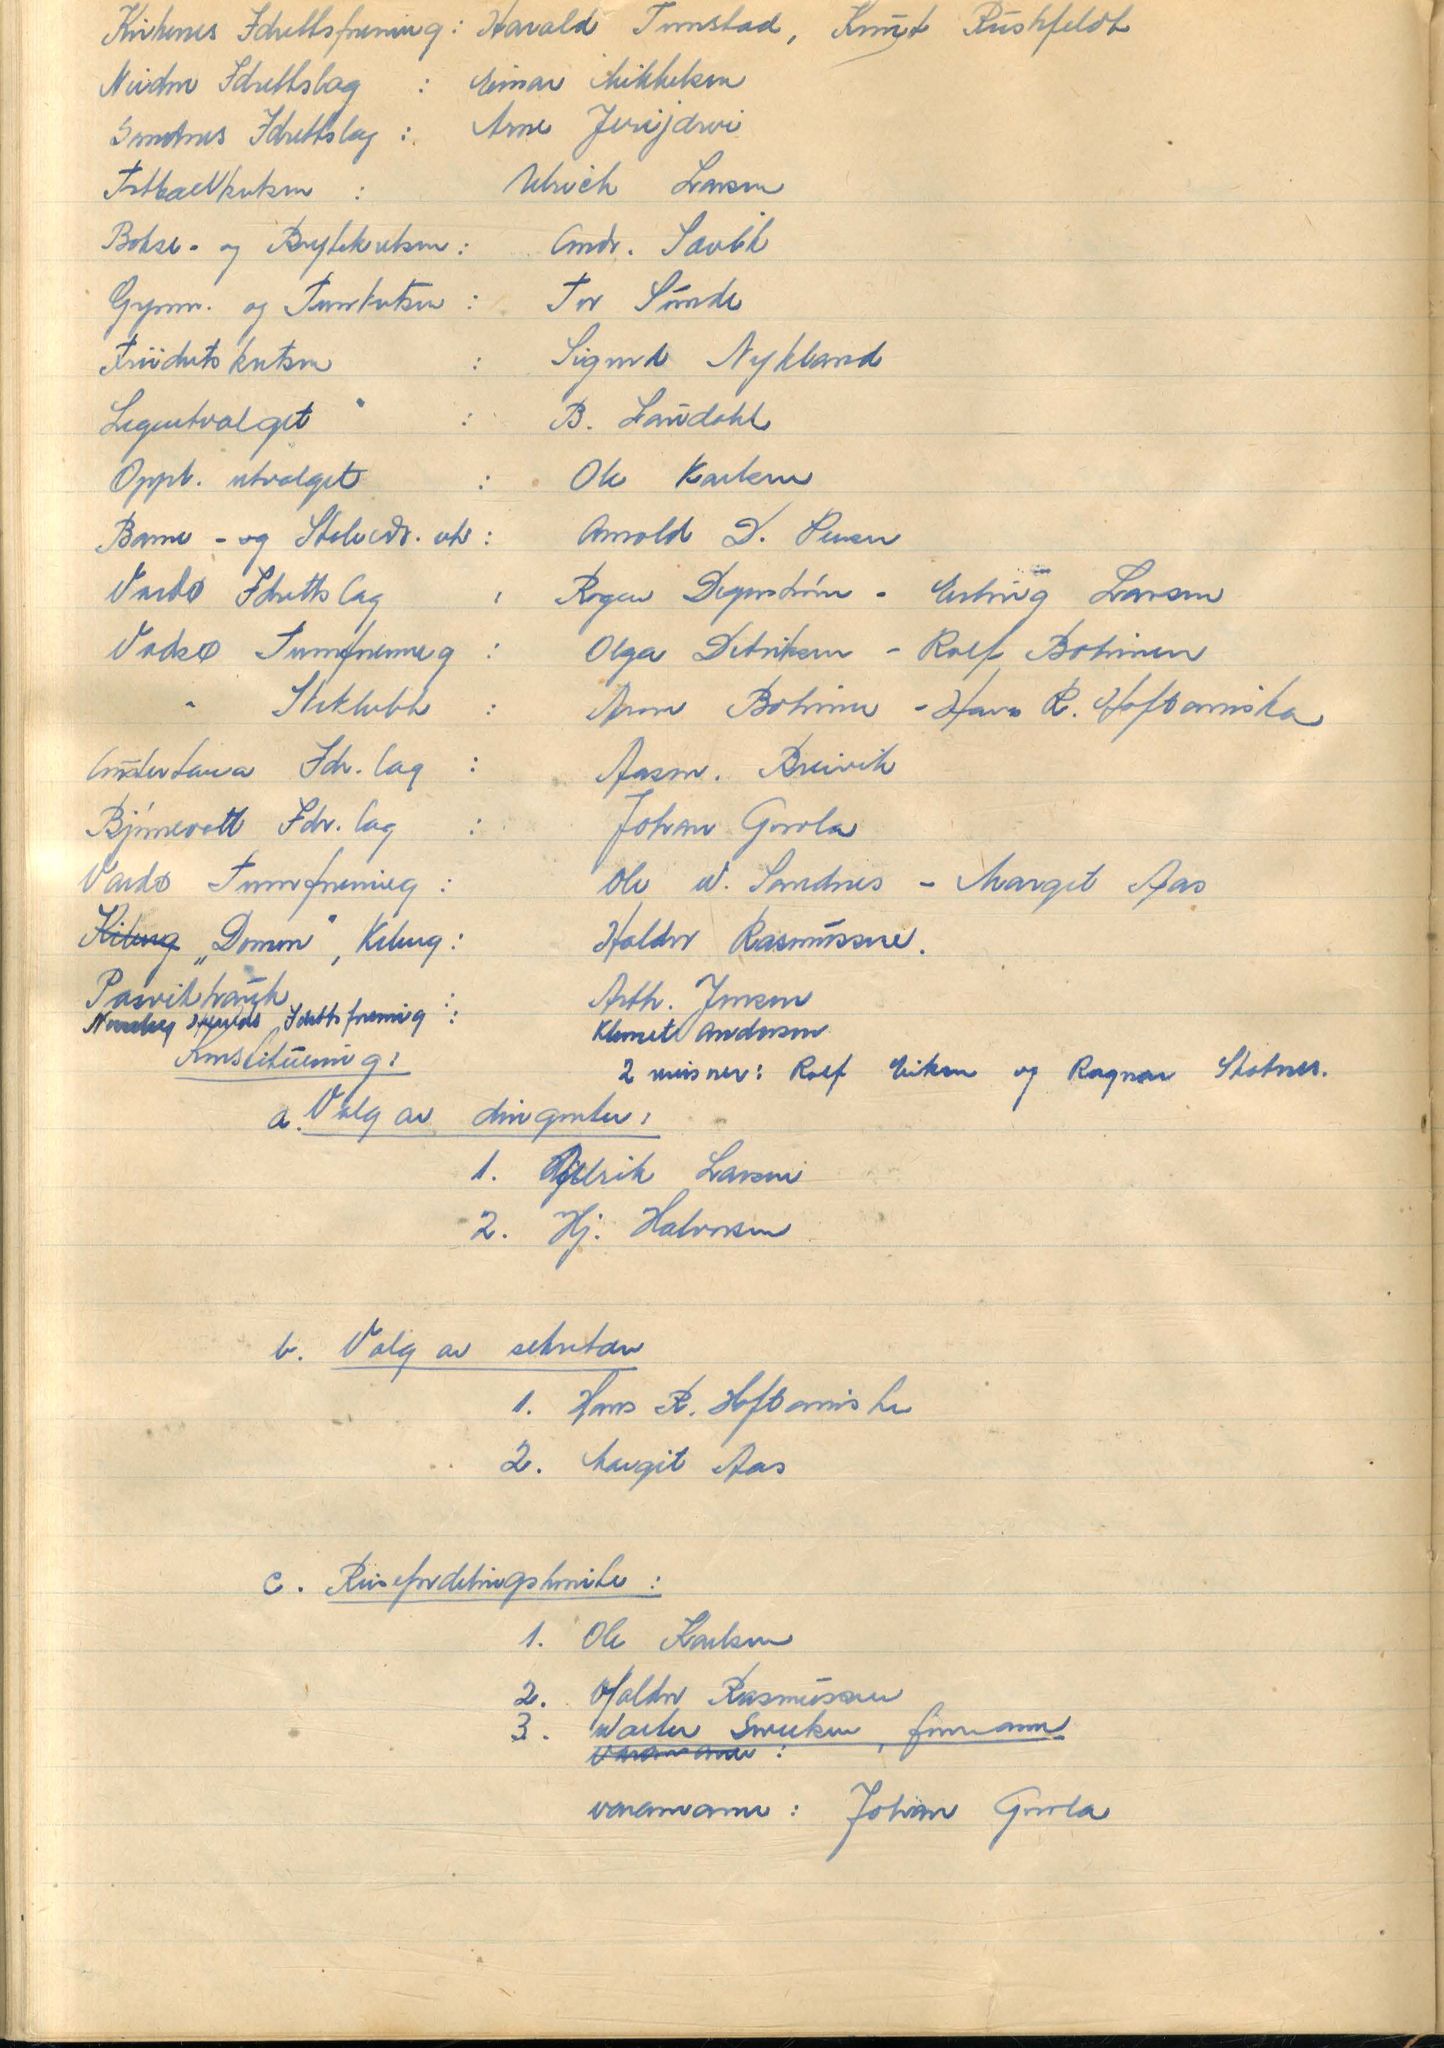 Kirkenes Idrettsforening: Harald Tunstad, Knut Rushfeldt
Neiden Idrettslag : Einar Mikkelsen
Sandnes Idrettslag : Arne
Fotballkretsen : Ulrich Larsen
Bokse- og Brytekretsen : Andr. Savik
Gymn. og Turnkretsen : Tor Sunde
Friidretskretsen : Sigurd Nykland
Legeutvalget : B. Laudahl
Oppl. utvalget : Ole Karlsen
Barne- og Skoleidr. utv : Arnold D. Persen
Vardø Idrettslag : Rogen Degerstrøm - Erling Larsen
Vadsø Turnforening : Olga Ditriksen - Rolf Bohinen
" Skiklubb : Arne Bohinen - Hans R. Hoftaniska
Austertana Idr. lag : Aasm. Breivik
Bjørnevatt Idr. lag : Johan Gorola
Vardø Turnforening : Ole W. Sandnes - Margit Aas
Kiberg "Domen", Kiberg : Haldor Rasmussen.
Pasviktrask : Arth. Jensen
Nesseby Idrettsforening : Klemet Andersen
Konstituering: 2 reisner: Rolf Eriksen og Ragnar Skotnes.
a. Valg av dirigenter:
1. Ulrik Larsen
2. Hj. Halvorsen
b. Valg av sekretær
1. Hans R. Hoftaniska
2. Margit Aas
c. Reisefordelingskomite :
1. Ole Karlsen
2. Haldor Rasmussen
3. Walter Sneeken, formann
varamann :
varamann : Johan Gorola